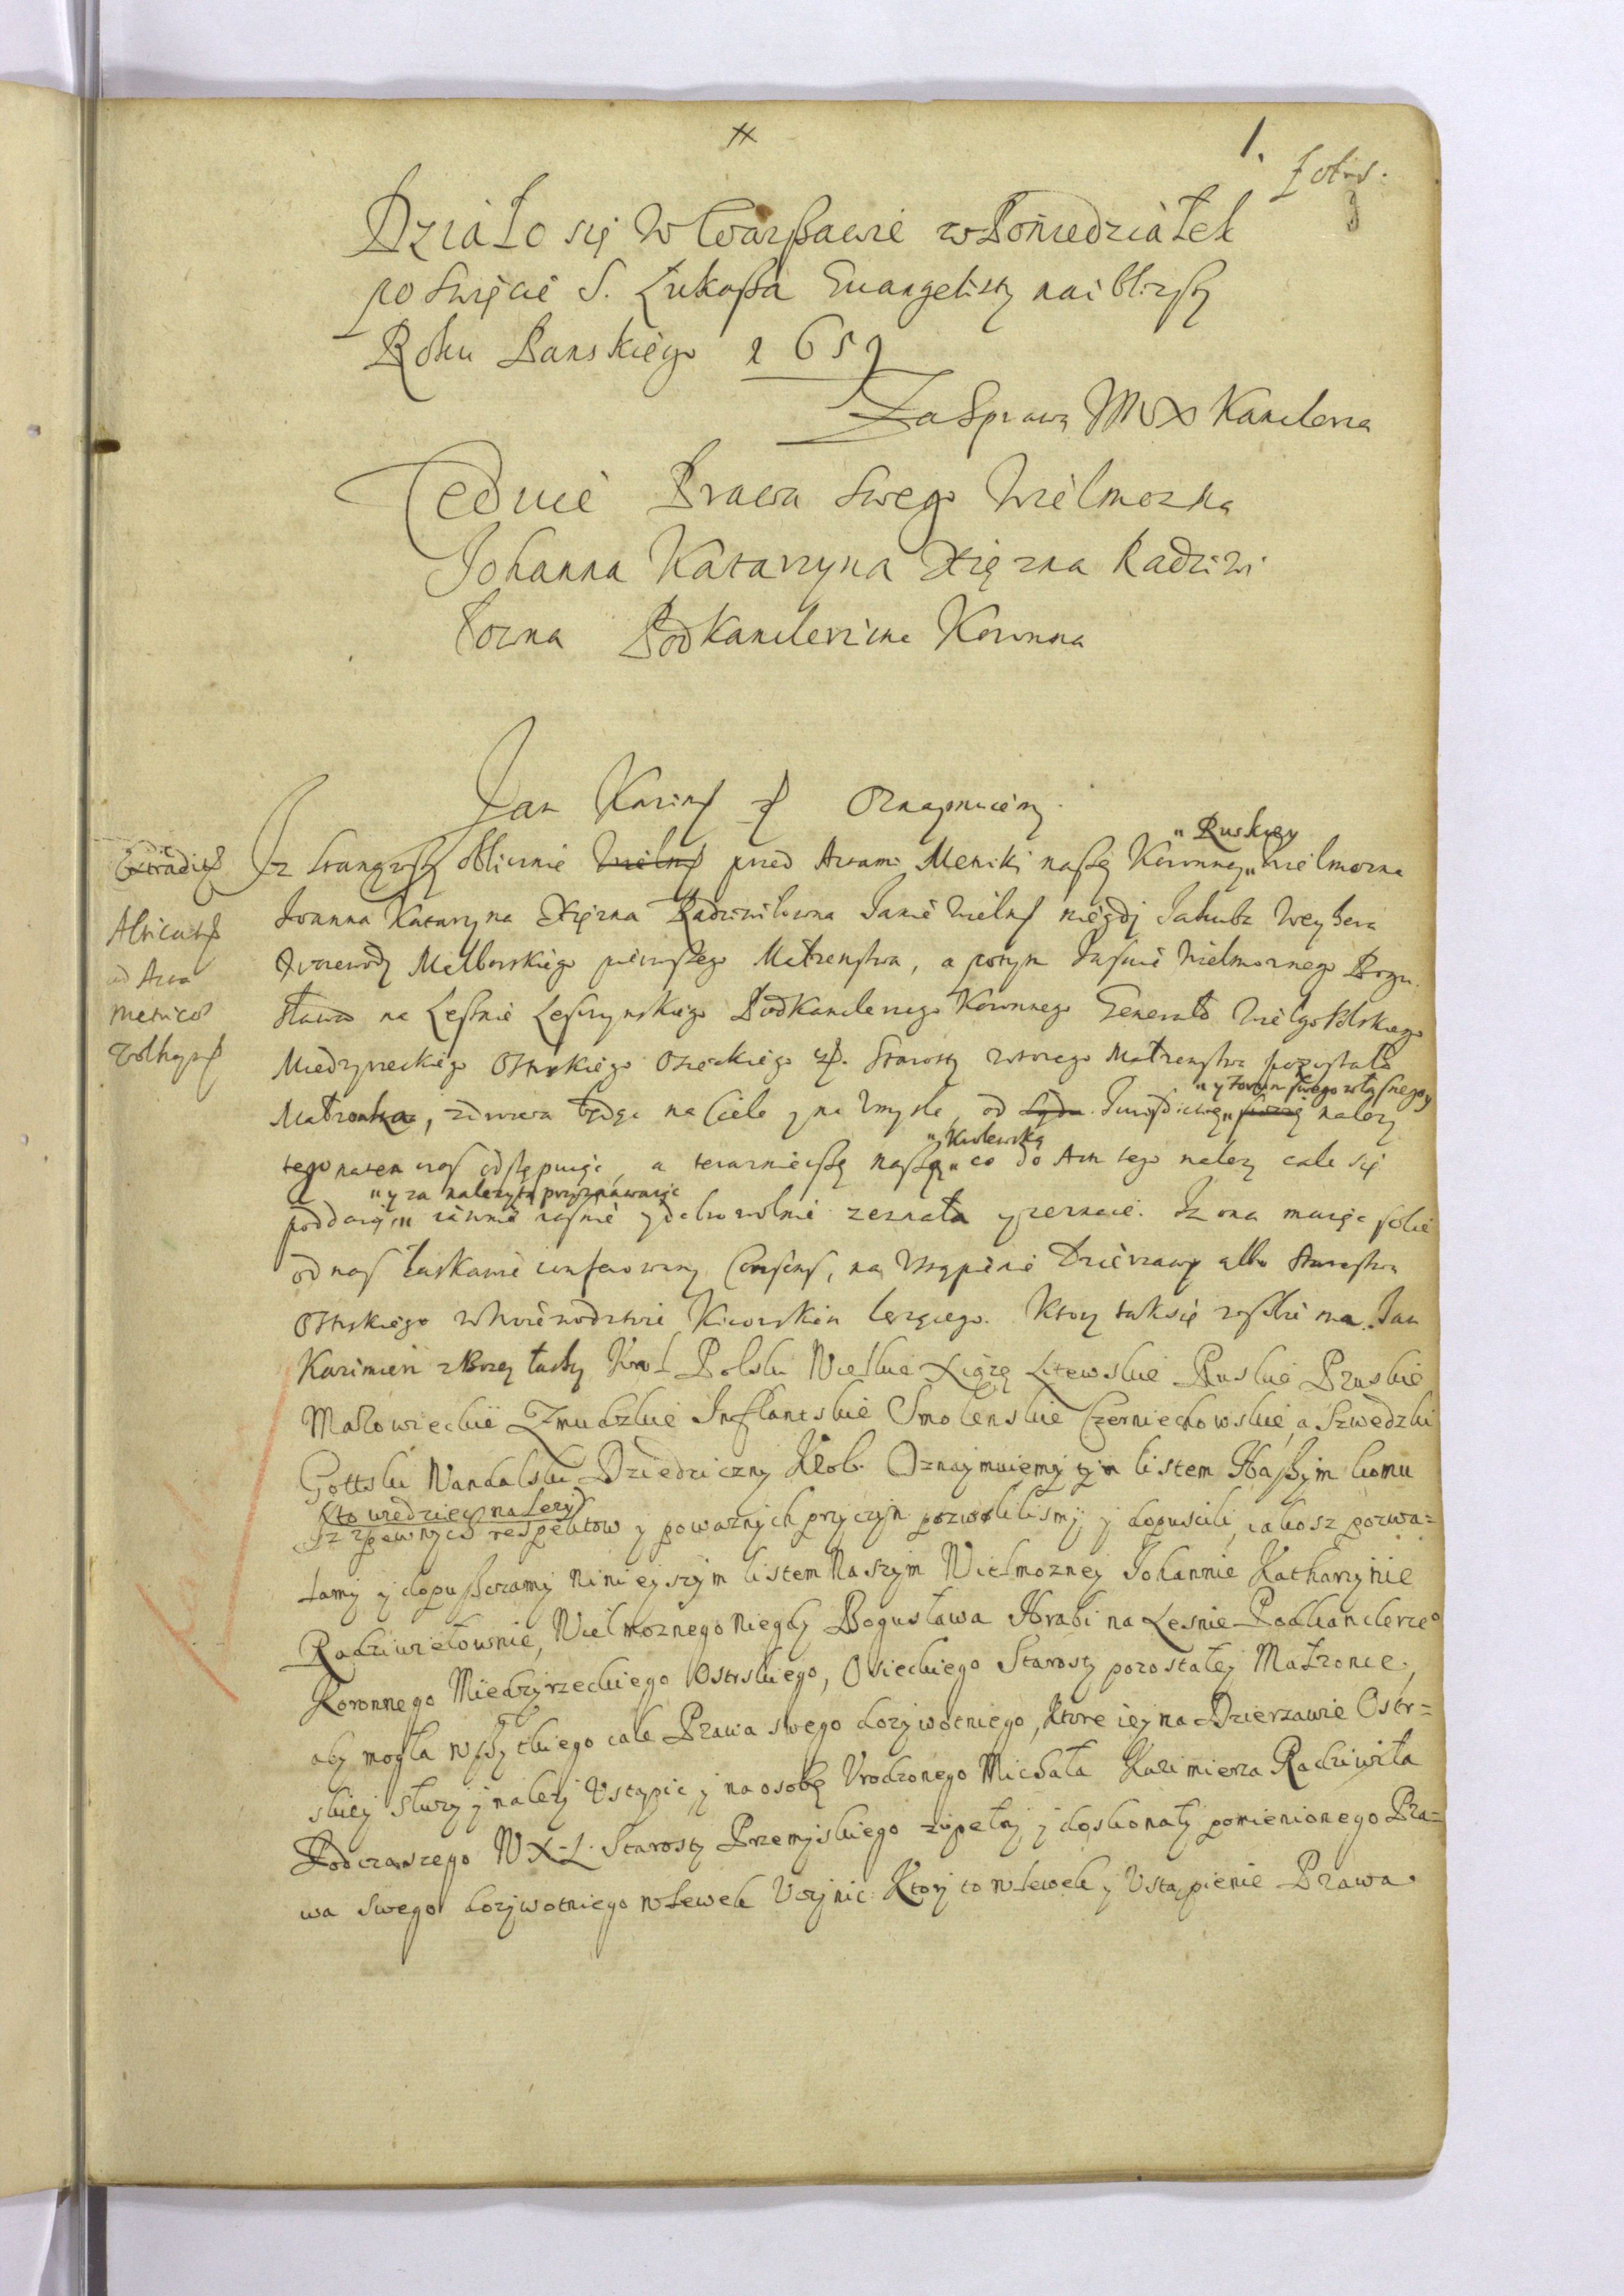 1.
Działo się w Warszawie w Poniedziałek
po święcie S. Łukasza Euangelisty naiblizszy
Roku Panskiego 1659
Za Sprawą Kanclerza
Ceduie Prawa swego Wielmozna
Johanna Katarzyna Xięzna Radziwi
łowna PodKanclerzina Koronna
Jan Kazimrz Oznaymuiemy
" Ruskiey
Iz stanąwszy oblicznie Wielm przed Actami Metriki naszey Koronney " Wielmozna
Extradit
Ioanna Katarzyna Xięzna Radziwilowna Panie Wielm niegdy Jakuba Weyhera
ad Acta
Woiewody Melborskiego pierwszego Matzenstwa, a potym Jasnie Wielmoznego Bogu
Metrices
sława na Lesnie Leszczynskiego PodKanclerzego Koronnego Generała WielgoPolskiego
Wolhyn
Miedzyrzeckiego Ostrskiego Osieckiego Starosty wtorego Matzenstwa pozostała
" y Forum swego własnego
Matronka, zdrowa będąc na Ciele y na Vmysle, od Iurisdictiey " swey nalezy
" Krolewską
tego naten czas odstępuiąc, a teraznieyszey naszey " co do Actu tego nalezy cale się
" y za nalezytą przyznawaiąc
poddaiąc " iawnie iasnie y dobrowolnie zeznała y zeznaie. Iz ona maiąc sobie
od nas łaskawie conferowany Consens, na Vstąpienie Dzierzawy albo Starostwa
Ostrskiego w Woiewodztwie Kiiowskim lezącego. Ktory tak się w sobie ma. Jan
Kazimierz z Bozey łaski Krol Polski Wielkie Xiąze Litewskie Ruskie Pruskie
Mazowieckie Zmudzkie Inflantskie Smolenskie Czerniechowskie, a Szwedzki
Gottski Wandalski Dziedziczny Krol. Oznaymuiemy tym listem Naszym komu
to wiedziec nalezy
Iz z pewnych respektow y powaznych przyczyn pozwolilismy y dopuscili, iakosz pozwa=
lamy y dopuszczamy ninieyszym listem Naszym Wielmozney Johannie Katharzynie
Radziwiełownie, Wielmoznego niegdy Bogusława Hrabi na Lesnie Podkanclerzeo
Koronnego Miedzyrzeckiego Ostrskiego, Osieckiego Starosty pozostałey Małzonce,
aby mogła wszytkiego cale Prawa swego dozywotniego, ktore iey na Dzierzawie Ostr=
skiey słuzy y nalezy Vstąpic y na osobę Vrodzonego Michała Kazimierza Radziwiła
Podczaszego W X L Starosty Przemyskiego zupełny y doskonały pomienionego Pra=
wa swego dozywotniego wlewek Vczynic. Ktory to wlewek y Vstąpienie Prawa